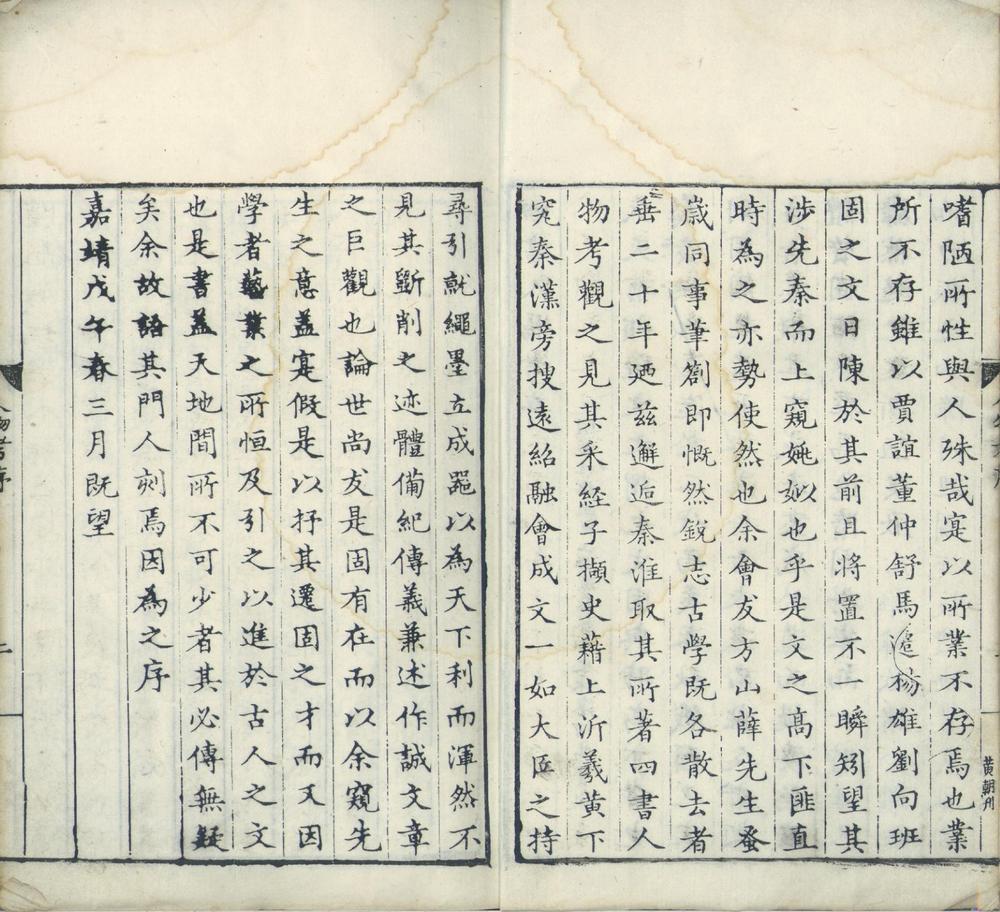 嗜陋所性與人殊哉寔以所業不存焉也業
所不存雖以賈誼董仲舒馬遷楊雄劉向班
固之文日陳於其前且將置不一瞬矧望其
涉先秦而上窺姚姒也乎是文之高下匪直
時為之亦勢使然也余會友方山薛先生蚤
歲同事筆劄即慨然銳志古學既各散去者
垂二十年廼茲邂逅秦淮取其所著四書人
物考觀之見其采經子擷史藉上沂羲黃下
究秦漢旁搜遠紹融會成文一如大匠之持
黃朝刊
尋引就繩墨立成噐以為天下利而渾然不
見其斵削之迹體備紀傳義兼述作誠文章
之巨觀也論世尚友是固有在而以余窺先
生之意盖寔假是以抒其遷固之才而又因
學者藝業之所恒及引之以進於古人之文
也是書盖天地間所不可少者其必傳無疑
矣余故語其門人刻焉因為之序
嘉靖戊午春三月既望
人物考序
二